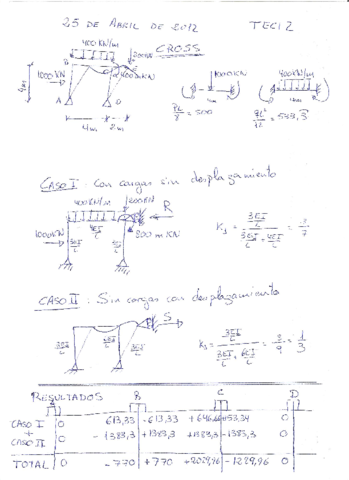 25 DE ABRIL DE 2012 TECI 2
CROSS
400KN/m
1000KN
4m
B
A D
4m 2m
1000KN
4m
PL/8 = 500
400KN/m
4m
CASO I : Con cargas sin desplazamiento
400KN/m 200KN
R
1000KN
800 mKN
4EI/L
3EI/L
K₁ = (3EI/L)/(3EI/L + 4EI/L) = 3/7
CASO II : Sin cargas con desplazamiento
S
3EI/L 3EI/L
K₁ = (3EI/L)/(3EI/L + 6EI/L) = 3/9 = 1/3
RESULTADOS B C D
CASO I 0 613,33 -613,33 0
+
CASO II 0 -1383,3 +1383,3 +1383,3 -1383,3 0
TOTAL 0 -770 +770 +2029,96 -1229,96 0